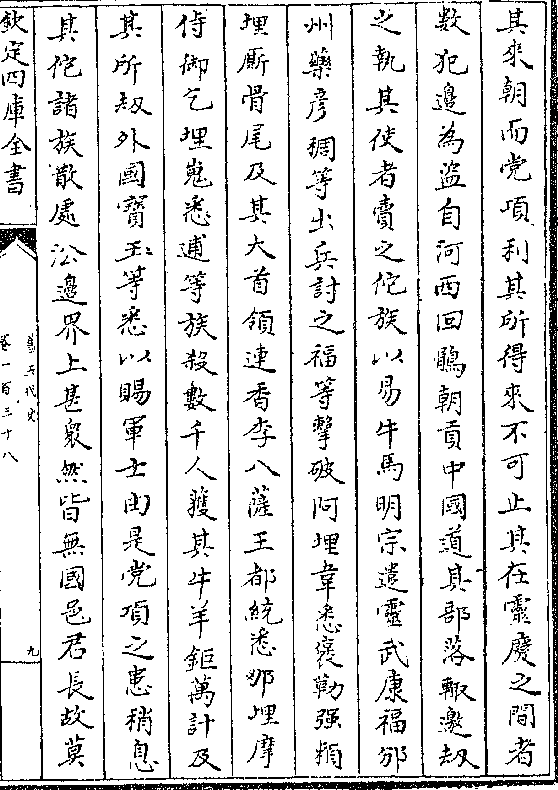 其來朝而党項利其所得來不可止其在靈慶之間者
數犯邊為盜自河西回鶻朝貢中國道其部落輙邀刼
之執其使者賣之佗族以易牛馬明宗遣靈武康福邠
州藥彦稠等出兵討之福等擊破阿埋韋悉褒勒强頼
埋厮骨尾及其大首領連香李八薩王都統悉那埋摩
侍御乞埋嵬悉逋等族殺數千人獲其牛羊鉅萬計及
其所刼外國寳玉等悉以賜軍士由是党項之患稍息
其佗諸族散處沿邊界上甚衆然皆無國邑君長故莫
欽定四庫全書
舊五代史
卷一百三十八
九